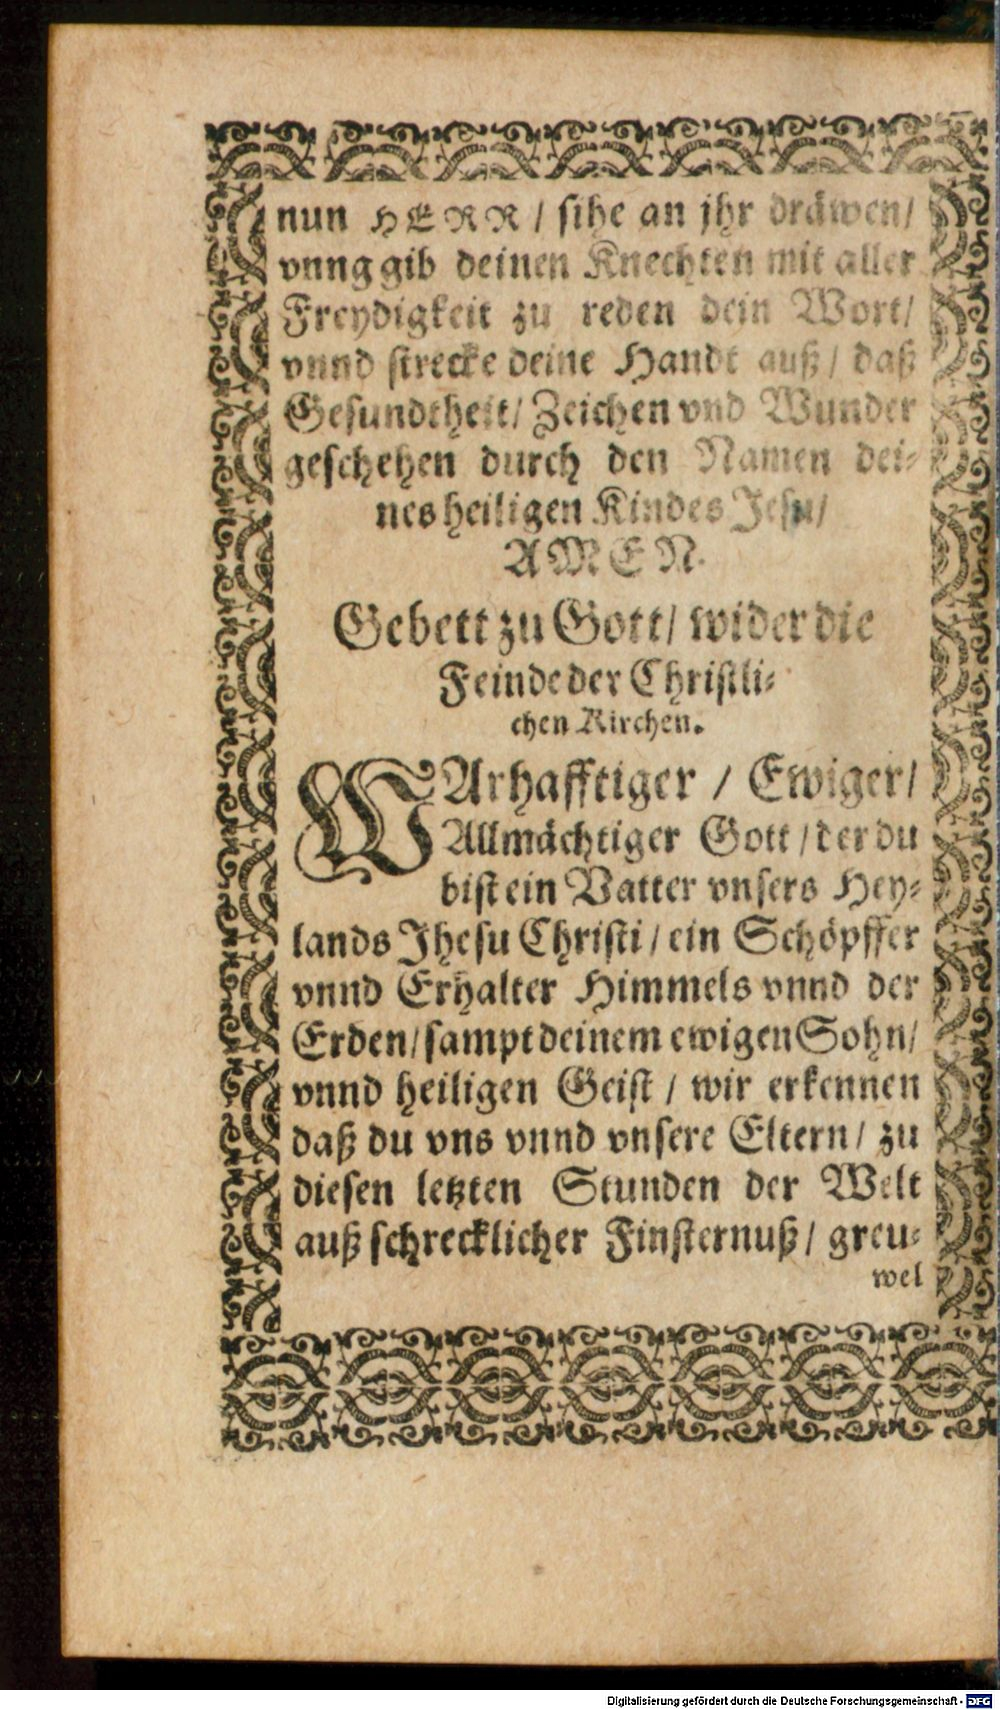 nun HERR / sihe an jhr dräwen/
vnng gib deinen Knechten mit aller
Freydigkeit zu reden dein Wort/
vnnd strecke deine Handt auß / daß
Gesundtheit/ Zeichen vnd Wunder
geschehen durch den Namen dei-
nes heiligen Kindes Jesu/
AMEN.
Gebett zu Gott/ wider die
Feinde der Christli-
chen Kirchen.
WArhafftiger / Ewiger/
Allmächtiger Gott / der du
bist ein Vatter vnsers Hey-
lands Jhesu Christi / ein Schöpffer
vnnd Erhalter Himmels vnnd der
Erden/ sampt deinem ewigen Sohn/
vnnd heiligen Geist / wir erkennen
daß du vns vnnd vnsere Eltern/ zu
diesen letzten Stunden der Welt
auß schrecklicher Finsternuß/ greu-
wel
Digitalisierung gefördert durch die Deutsche Forschungsgemeinschaft - DFG